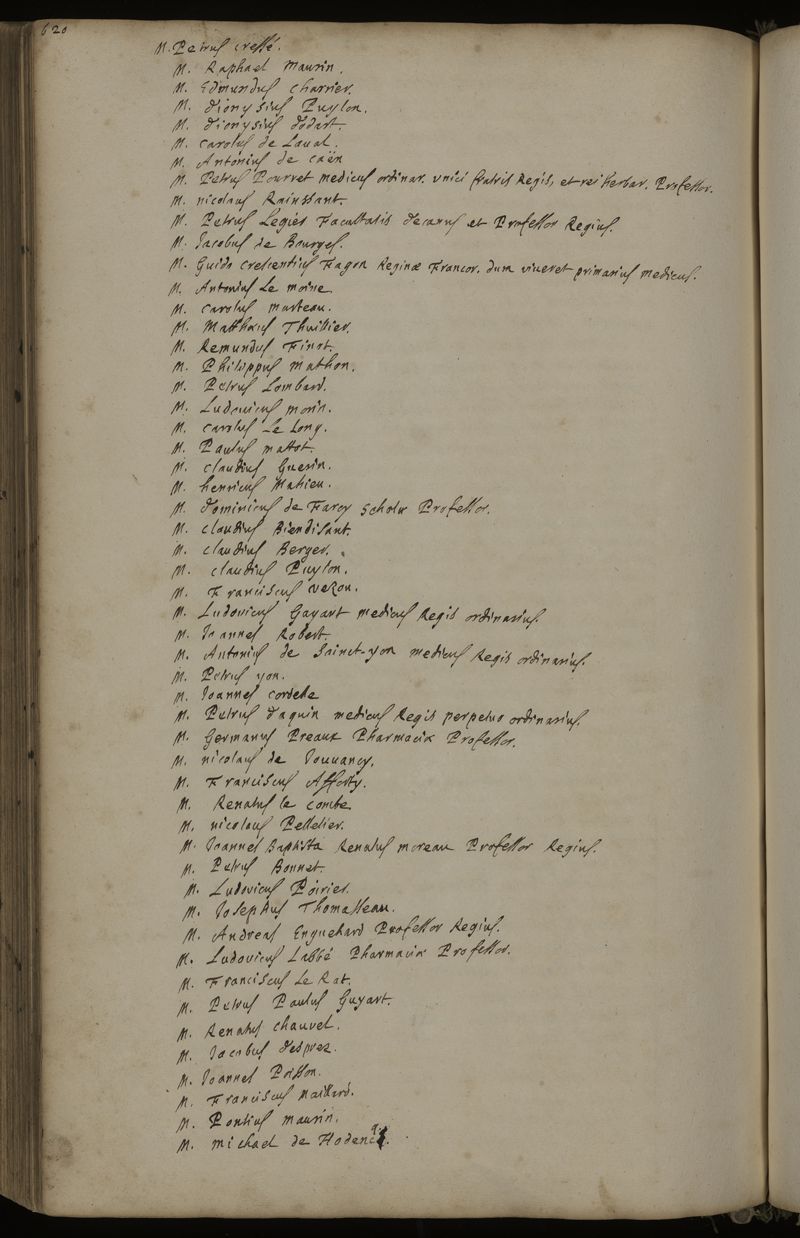 620
M. Petrus Cressé.
M. Raphael Maurin.
M. Edmundus Charrier.
M. Dionysius Puylon.
M. Dionysius Dodart.
M. Carolus de Laval.
M. Antonius de Caën
M. Petrus Pourret medicus ordinar. unici fratris Regis, et rei herbar. Professor.
M. Nicolaus Rainssant.
M. Petrus Legier Facultatis Decanus et Professor Regius.
M. Jacobus de Bourges.
M. Guido Crescentius Fagon Reginæ Francor. dum viveret primarius medicus.
M. Antonius Le moine
M. Carolus Marteau.
M. Matthæus Thuillier.
M. Remundus Finot.
M. Philippus Mathon.
M. Petrus Lombard.
M. Ludovicus Morin.
M. Carolus Le Long.
M. Paulus Mattot.
M. Claudius Guerin.
M. henricus Mahieu.
M. Dominicus de Farcy Scholæ Professor.
M. Claudius Biendisant.
M. Claudius Berger.
M. Claudius Puylon.
M. Franciscus Vezon.
M. Ludovicus Gayant medicus Regis ordinarius.
M. Joannes Robert.
M. Antonius de Sainct-yon medicus Regis ordinarius.
M. Petrus yon.
M. Joannes Cordelle
M. Petrus Daquin medicus Regis perpetuo ordinarius.
M. Germanus Preaux Pharmaciæ Professor.
M. Nicolaus de Jouvancy.
M. Franciscus Afforty.
M. Renatus le comte.
M. Nicolaus Pelletier.
M. Joannes Baptista Renatus Moreau Professor Regius.
M. Petrus Bonnet.
M. Ludovicus Poirier.
M. Josephus Thomasseau.
M. Andreas Enguehard Professor Regius.
M. Ludovicus Labbé Pharmaciæ Professor.
M. Franciscus Le Rat.
M. Petrus Paulus Guyart.
M. Renatus Chauvel.
M. Jacobus Desprez.
M. Joannes Poisson.
M. Franciscus Maillard.
M. Pontius Maurin.
M. Michael de Hodencq.